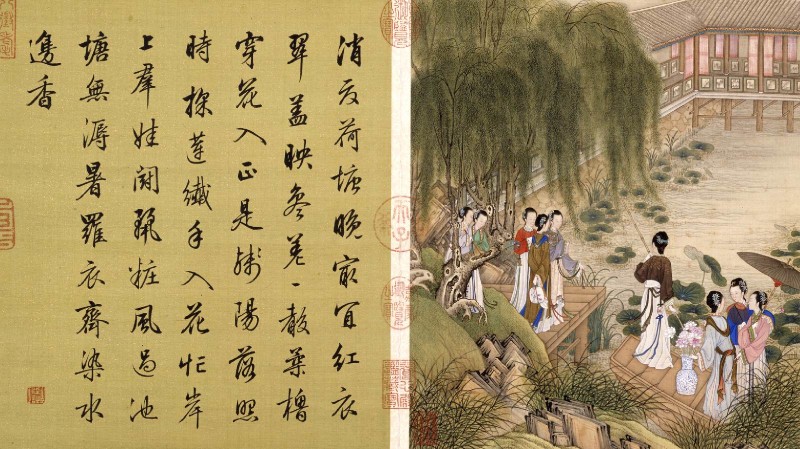 消夏荷塘晚最宜紅衣
翠蓋映參差一聲柔櫓
穿花入正是殘陽落照
時採蓮纖手入花忙岸
上羣娃鬪粧風過池
塘無溽暑羅衣齊染水
邊香